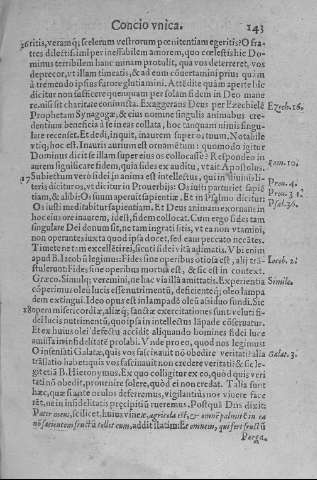 Concio vnica. 143
26 ritis, veramq; scelerum vestrorum pœnitentiam egeritis? O fra-
tres dilectissimi per ineffabilem amorem, quo cœlestis hic Do-
minus terribilem hanc minam protulit, qua vos deterreret, vos
deprecor, vt illam timeatis, & ad eum cõuertamini prius quàm
à tremendo ipsius furore glutiamini. Attẽdite quàm apertè hîc
dicitur non sufficere quenquam per solam fidem in Deo mane
re, nisi sit charitate coniuncta. Exaggerans Deus per Ezechielẽ
Ezech. 16.
Prophetam Synagogæ, & eius nomine singulis animabus cre-
dentium beneficia à se in eas collata, hoc tanquam nimis singu-
lare recenset. Et dedi, inquit, inaurem super os tuum. Notabile
vtiq; hoc est. Inauris aurium est ornamẽtum: quomodo igitur
Dominus dicit se illam super eius os collocasse? Respondeo in
aurem significare fidem, quia fides ex auditu, vt ait Apostolus.
Rom. 10.
27 Subiectum verò fidei in anima est intellectus, qui in diuinis li-
teris dicitur os, vt dicitur in Prouerbijs: Os iusti parturiet sapiẽ
Prou. 4.
tiam, & alibi: Os suum aperuit sapientiæ. Et in Psalmo dicitur:
Prou. 31.
Os iusti meditabitur sapientiam. Et Deus animam exornans in
Psal. 36.
hoc eius ore inaurem, id est, fidem collocat. Cum ergo fides tam
singulare Dei donum sit, ne tam ingrati sitis, vt ea non vtamini,
non operantes iuxta quod ipsa docet, sed eam peccato necātes.
Timete ne tram excellẽti rei, sicuti fidei vitã adimatis. Vbi enim
apud B. Iacobũ legimus: Fides sine operibus otiosa est, alij trã-
Iacob. 2.
stulerunt: Fides sine operibus mortua est, & sic est in context.
Græco. Simul q; veremini, ne hac via illã amittatis. Experientia
Simile.
cõperimus oleo lucis esse nutrimentũ, deficiente q; oleo lampa
dem extingui. Ideo opus est in lampadẽ oleũ assiduo fundi. Sic
28 opera misericordiæ, aliæq; sanctæ exercitationes sunt veluti fi-
dei lucis nutrimentũ, quo ipsa in intellectus làpade cõseruatur.
Et ex huius olei defectu accidit aliquando homines fidei iure
amissa in infidelitatẽ prolabi. Vnde pro eo, quod nos legimus:
O insensati Galatæ, quis vos fascinauit nõ obedire veritati? alia
Galat. 3.
trāslatio habet: quis vos fascinauit non credere veritati? & sic le-
git etiã B. Hieronymus. Ex quo colligitur ex eo, quod quis veri
tati nō obedit, prouenire solere, quòd ei non credat. Talia sunt
hæc, quæ si ante oculos deferremus, vigilantius nos viuere face
rẽt, ne in infidelitatis præcipitiũ rueremus. Postquã Dñs dixit:
Pater meus, scilicet, huius vineæ, agricola est, & omnẽ palmitẽ in ea
nō ferentem fructũ tollet eum, addit statim: Et omnem, qui fert fructũ
Parga.